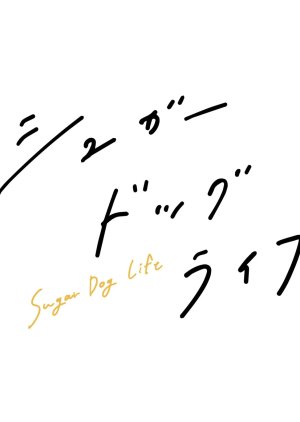 シュガー
ドッグ
ライフ
Sugar Dog Life